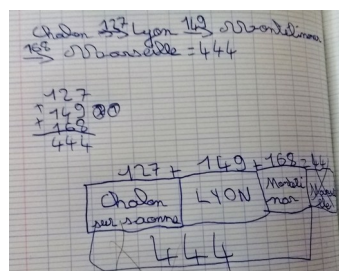 Chalon 127 Lyon 149 Montélimar
168 Marseille = 444
127
+ 149
+ 168
444
127 + 149 + 168 = 44
Chalon LYON Monteli
sur saonne mar
444